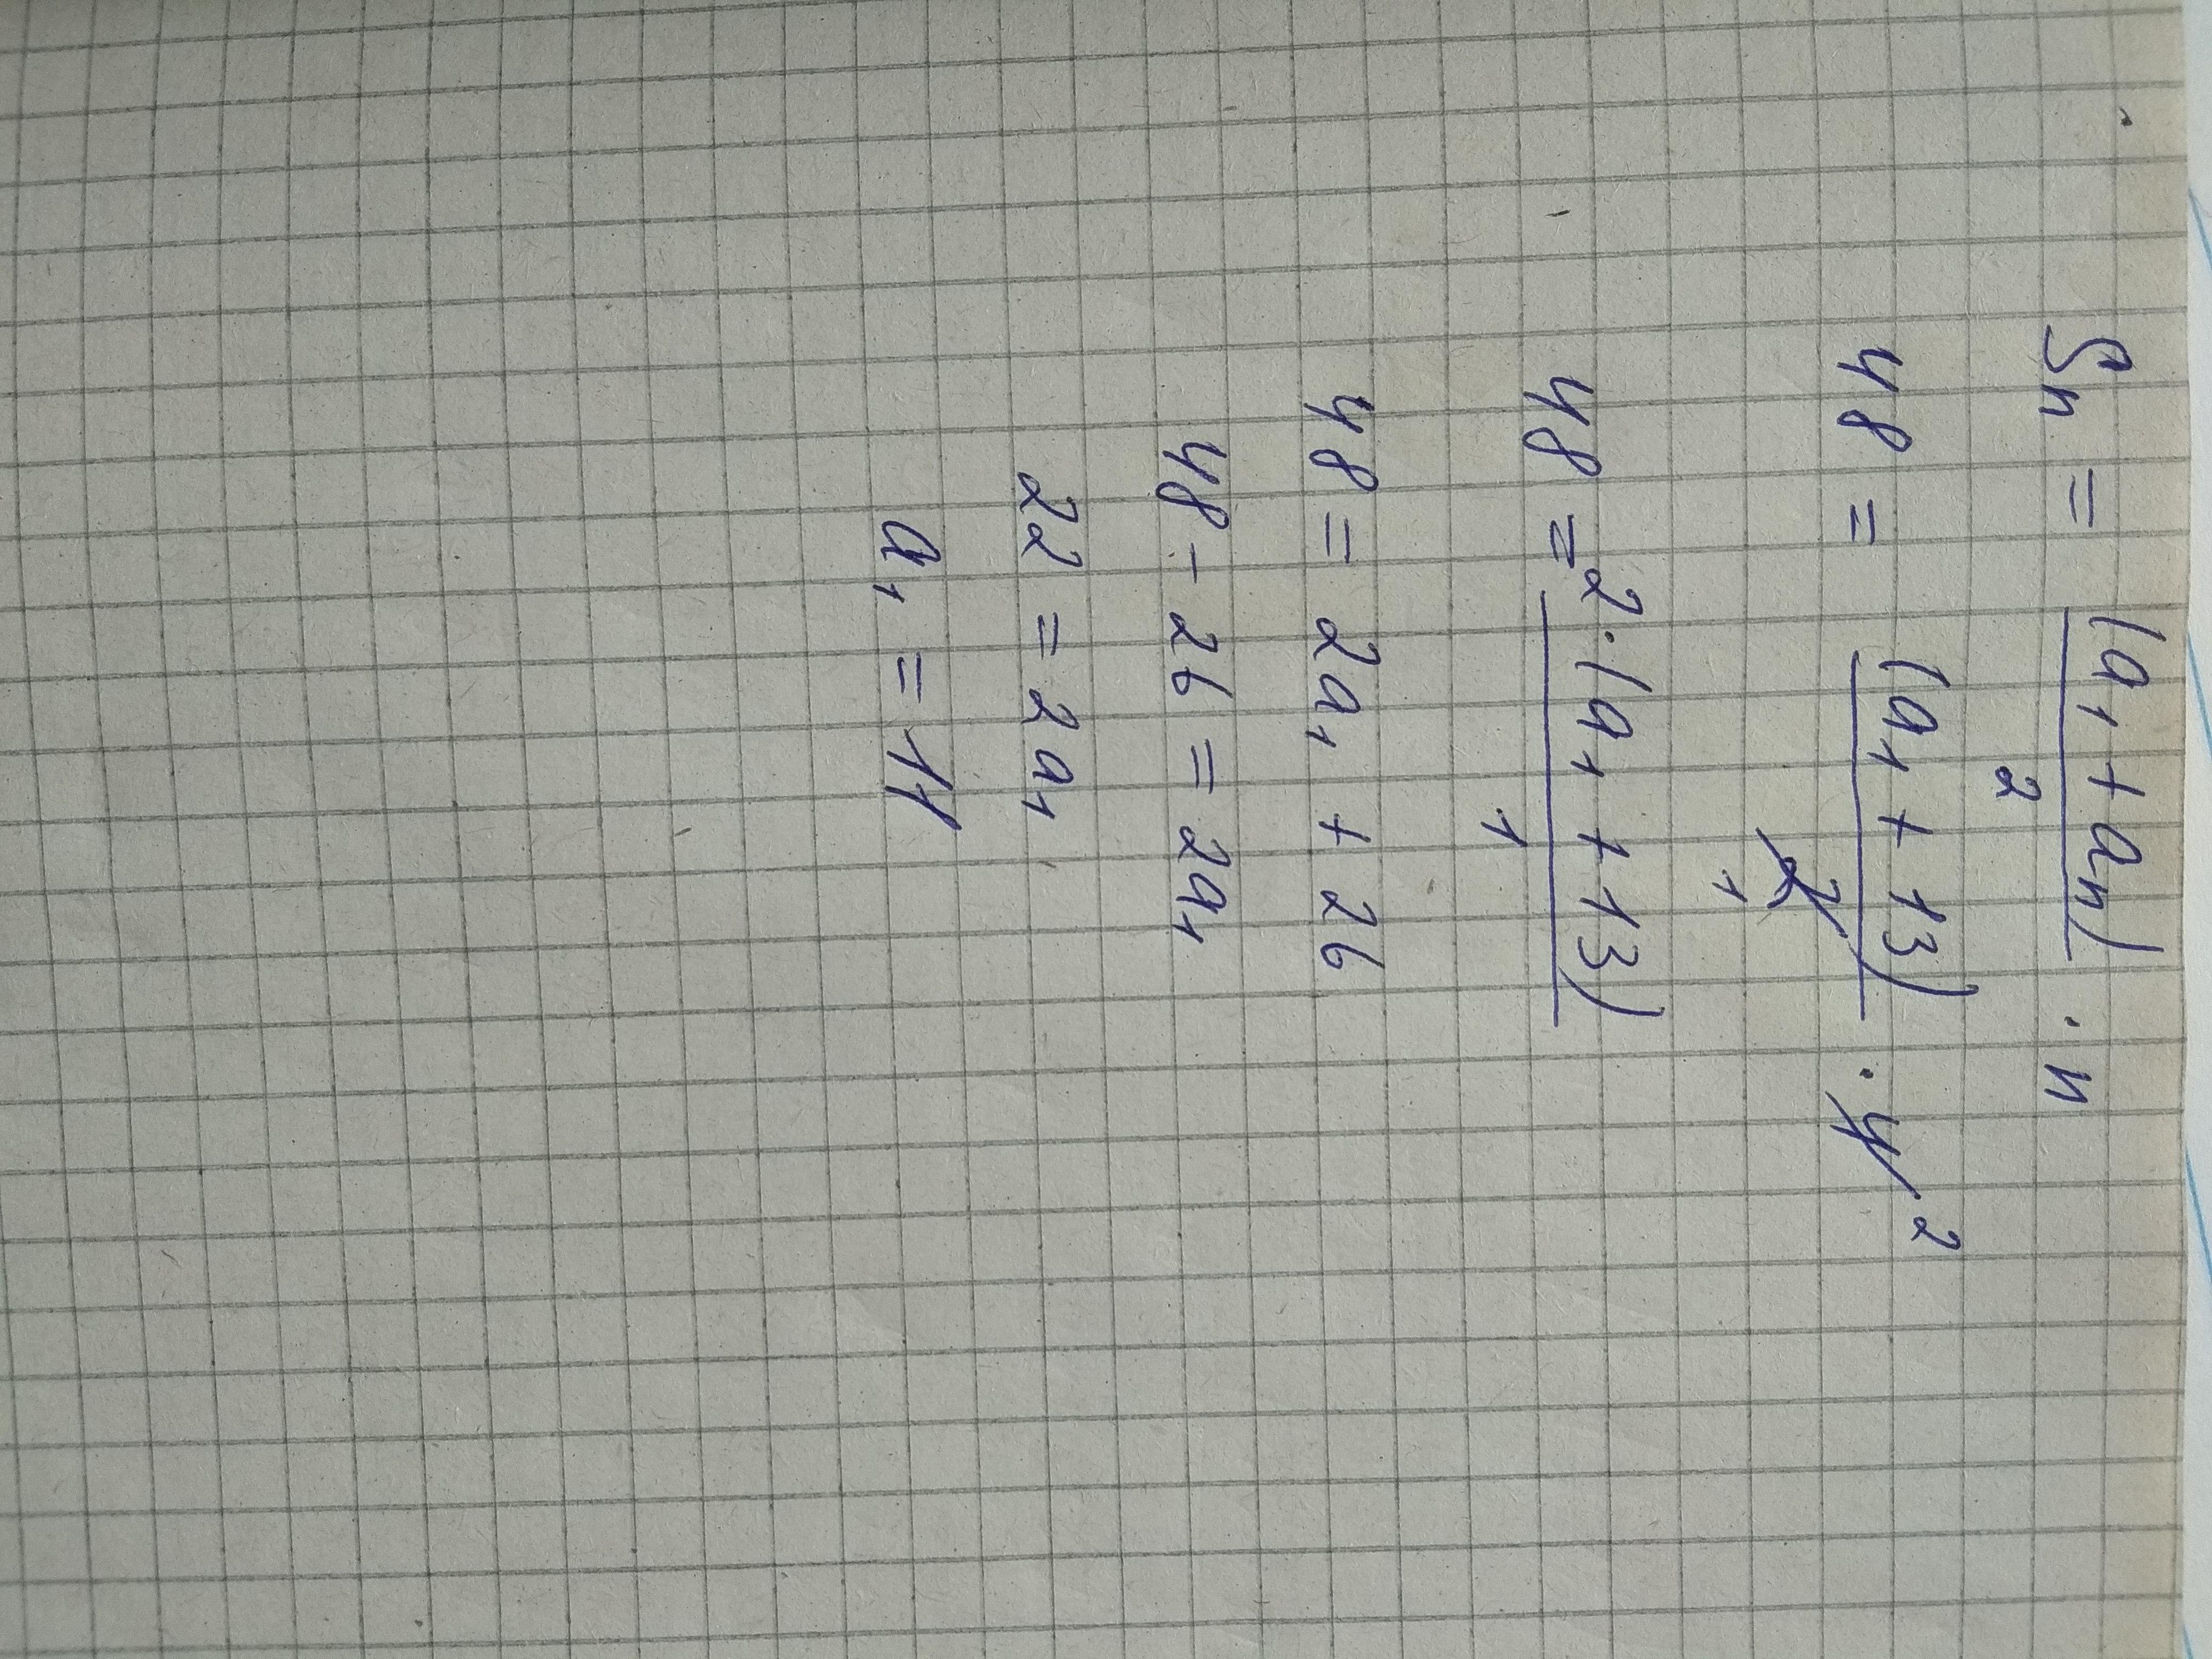 Sn = (a₁ + an)/2 · n
48 = (a₁ + 13)/2 1 · 4 2
48 = 2·(a₁ + 13)/1
48 = 2a₁ + 26
48 - 26 = 2a₁
22 = 2a₁
a₁ = 11